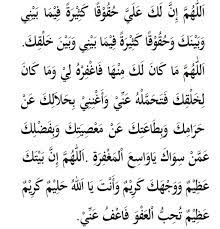 اَللّٰهُمَّ إِنَّ لَكَ عَلَيَّ حُقُوْقًا كَثِيْرَةً فِيْمَا بَيْنِي
وَبَيْنَكَ وَحُقُوْقًا كَثِيْرَةً فِيْمَا بَيْنِي وَبَيْنَ خَلْقِكَ.
اَللّٰهُمَّ مَا كَانَ لَكَ مِنْهَا فَاغْفِرْهُ لِيْ وَمَا كَانَ
لِخَلْقِكَ فَتَحَمَّلْهُ عَنِّيْ وَأَغْنِنِيْ بِحَلَالِكَ عَنْ
حَرَامِكَ وَبِطَاعَتِكَ عَنْ مَعْصِيَتِكَ وَبِفَضْلِكَ
عَمَّنْ سِوَاكَ يَاوَاسِعَ الْمَغْفِرَةِ .اَللّٰهُمَّ إِنَّ بَيْتَكَ
عَظِيْمٌ وَوَجْهَكَ كَرِيْمٌ وَأَنْتَ يَا اَللّٰهُ حَلِيْمٌ كَرِيْمٌ
عَظِيْمٌ تُحِبُّ الْعَفْوَ فَاعْفُ عَنِّيْ.